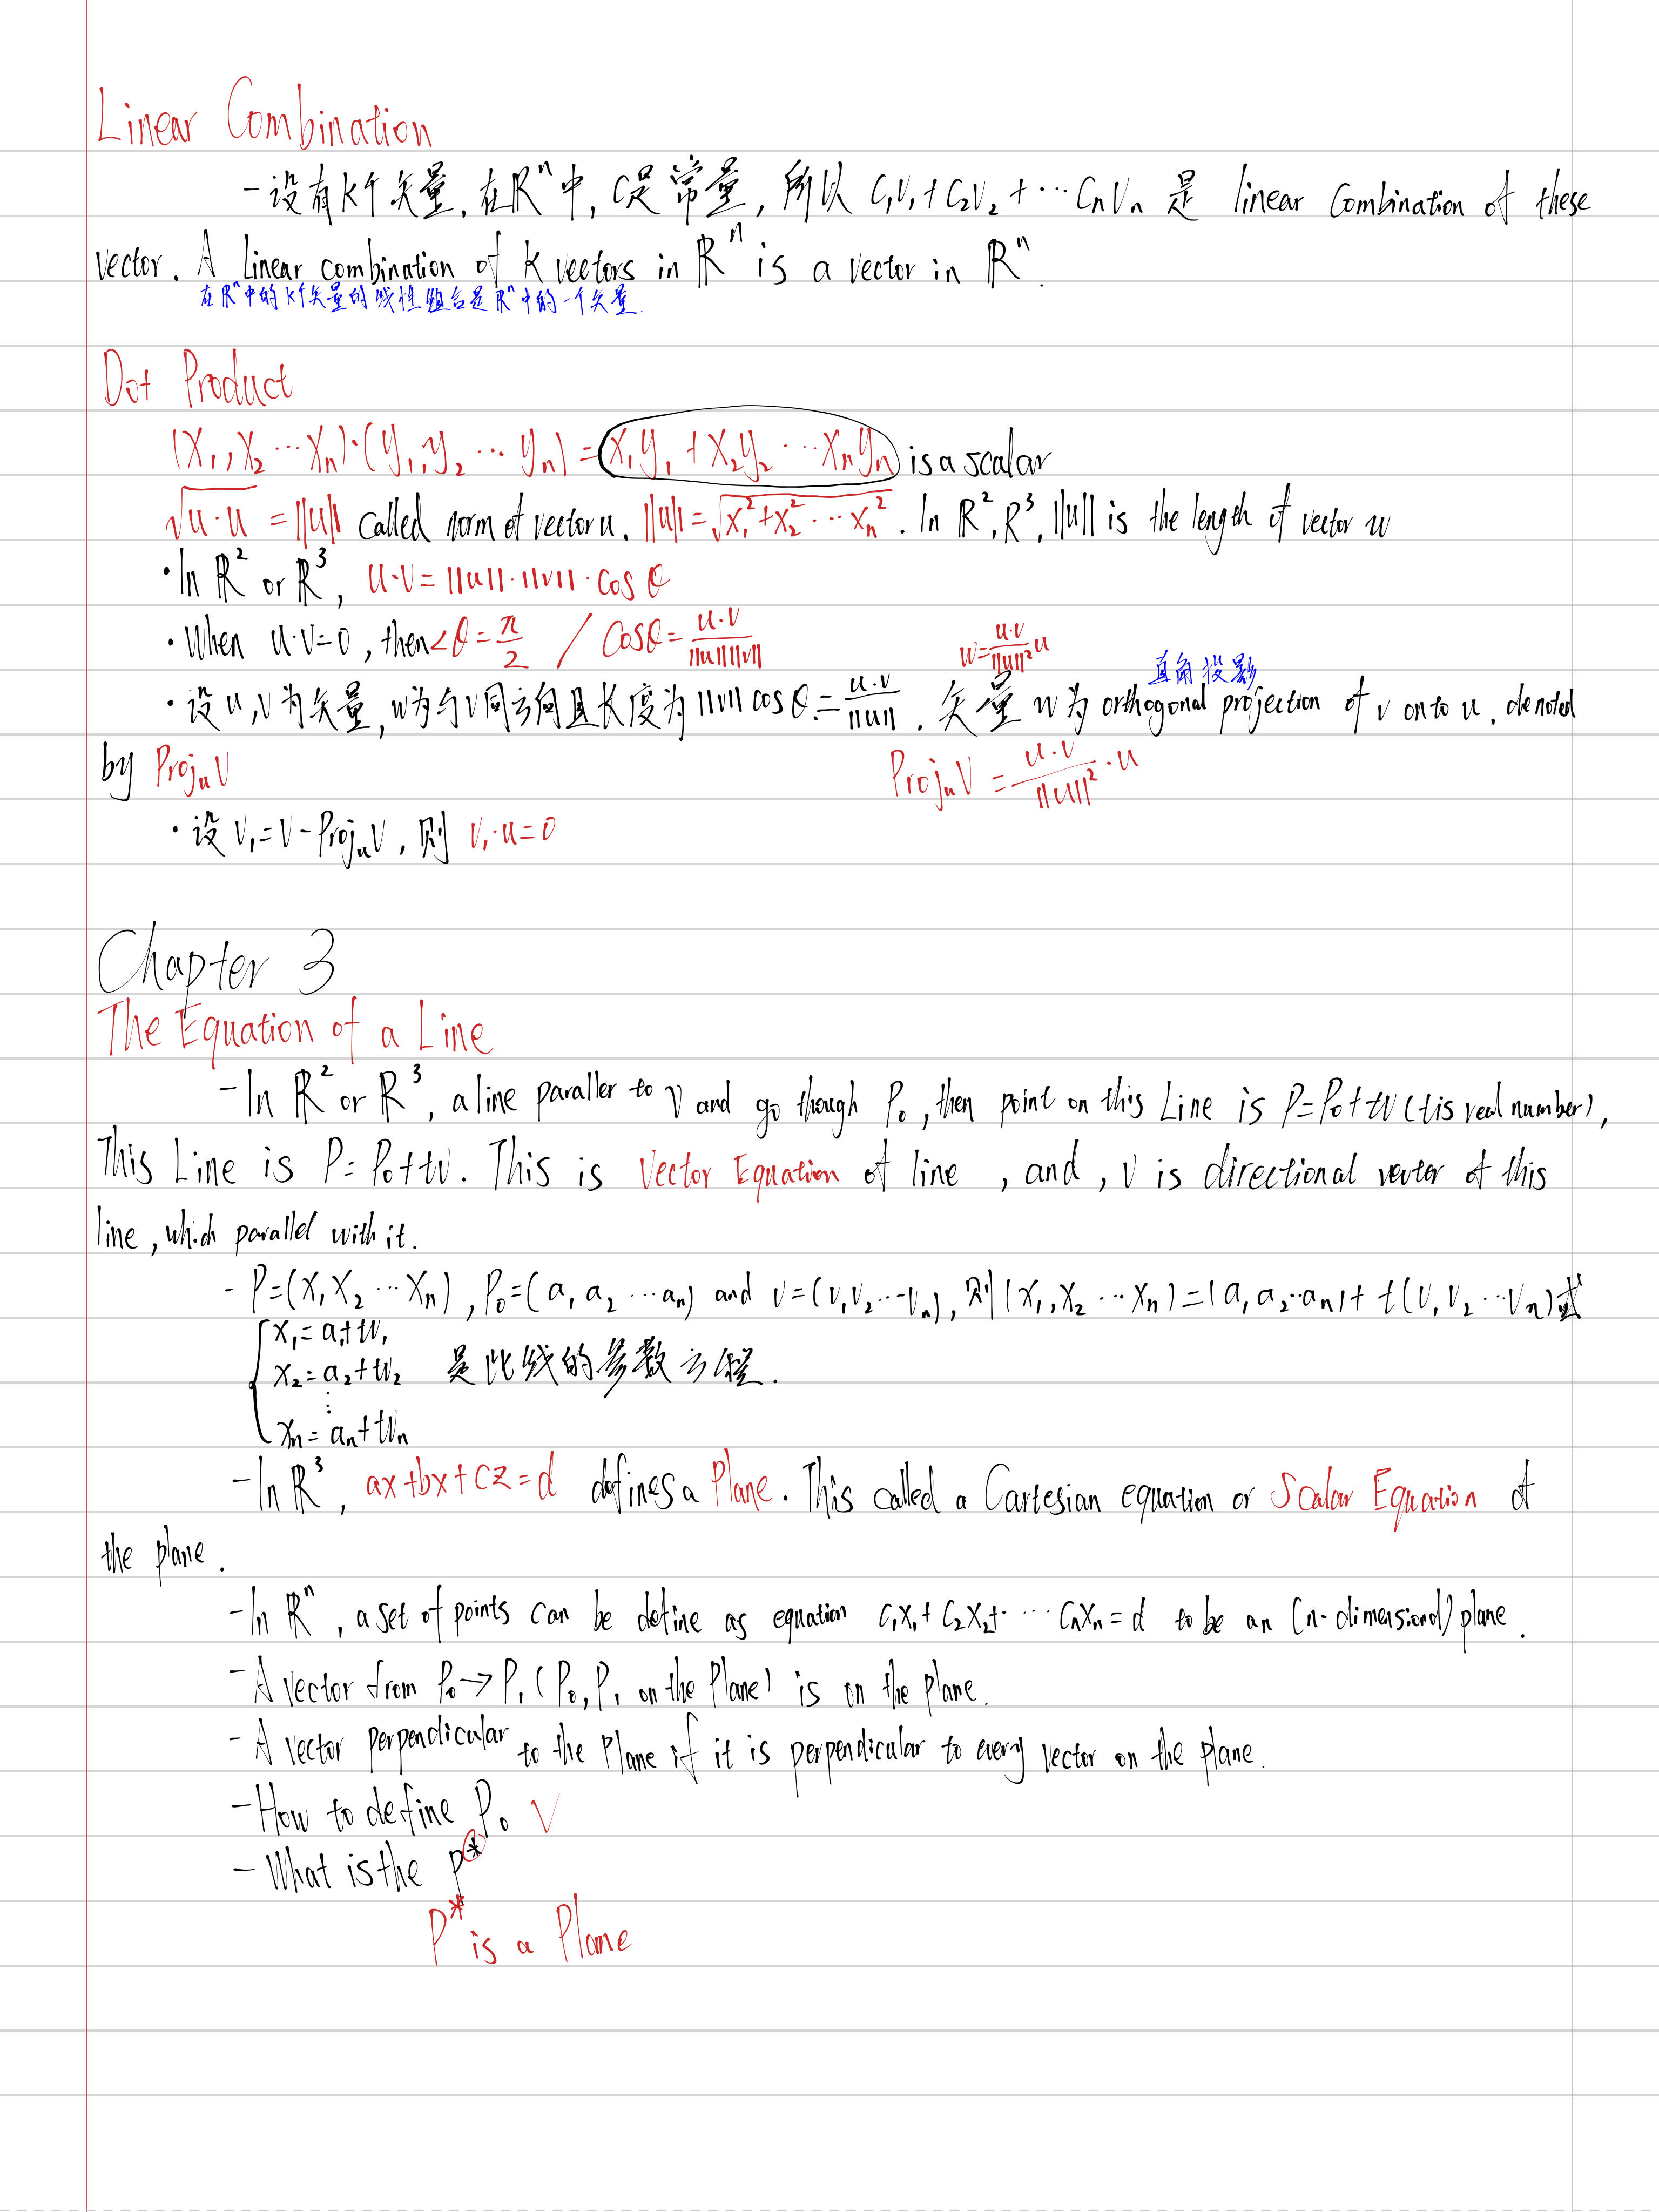 Linear Combination
- 设有k个矢量, 在ℝⁿ中, C是常量, 所以 C₁V₁+C₂V₂+⋯CnVn 是 linear Combination of these
vector. A Linear combination of k vectors in ℝⁿ is a vector in ℝⁿ.
在ℝⁿ中的k个矢量的线性组合是ℝⁿ中的一个矢量.
Dot Product
(X₁,X₂⋯Xn)·(y₁,y₂⋯yn)=X₁y₁+X₂y₂⋯Xnyn is a scalar
√u·u = ||u|| called norm of vector u. ||u||=√x₁²+x₂²⋯xn². In ℝ²,ℝ³, ||u|| is the length of vector u
·In ℝ² or ℝ³, u·v=||u||·||v||·cosθ
·When u·v=0, then ∠θ=π/2 / Cosθ=u·v/||u||||v||
w=u·v/||u||² u
直角投影
·设u,v为矢量, w为与v同方向且长度为||v||cosθ.=u·v/||u||. 矢量w为orthogonal projection of v onto u, denoted
by ProjuV
ProjuV=u·v/||u||²·u
·设V₁=V-ProjuV, 则 V₁·u=0
Chapter 3
The Equation of a Line
-In ℝ² or ℝ³, a line paraller to v and go though P₀, then point on this Line is P=P₀+tv(t is real number),
This Line is P=P₀+tv. This is Vector Equation of line, and, v is directional vector of this
line, which parallel with it.
- P=(X₁X₂⋯Xn), P₀=(a₁a₂⋯an) and v=(v₁v₂⋯vn), 则(X₁,X₂⋯Xn)=(a₁a₂⋯an)+t(v₁v₂⋯vn)或
x₁=a₁+tv₁
x₂=a₂+tv₂ 是此线的参数方程.
⋮
xn=an+tvn
-In ℝ³, ax+bx+cz=d defines a Plane. This called a Cartesian equation or Scalar Equation of
the plane.
-In ℝⁿ, a set of points can be define as equation C₁X₁+C₂X₂+⋯CnXn=d to be an (n-dimensional) plane.
-A vector from P₀→P₁(P₀,P₁ on the Plane) is on the plane.
-A vector perpendicular to the Plane if it is perpendicular to every vector on the plane.
-How to define P₀ √
-What is the P*
P* is a Plane